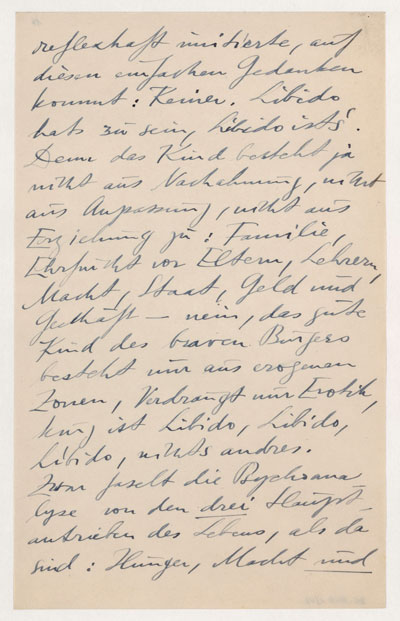 reflexhaft imitierte, auf
diesen einfachen Gedanken
kommt: Keiner. Libido
hats zu sein, Libido ists.
Denn das Kind besteht ja
nicht aus Nachahmung, nicht
aus Anpassung, nicht aus
Erziehung zu: Familie,
Ehrfurcht vor Eltern, Lehrern,
Macht, Staat, Geld und
Geschäft — nein, das gute
Kind des braven Bürgers
besteht nur aus erogenen
Zonen, Verdrängt nur Erotik,
kurz ist Libido, Libido,
Libido, nichts andres.
Zwar faselt die Psychoana
lyse von den drei Haupt-
antrieben des Lebens, als da
sind: Hunger, Macht und